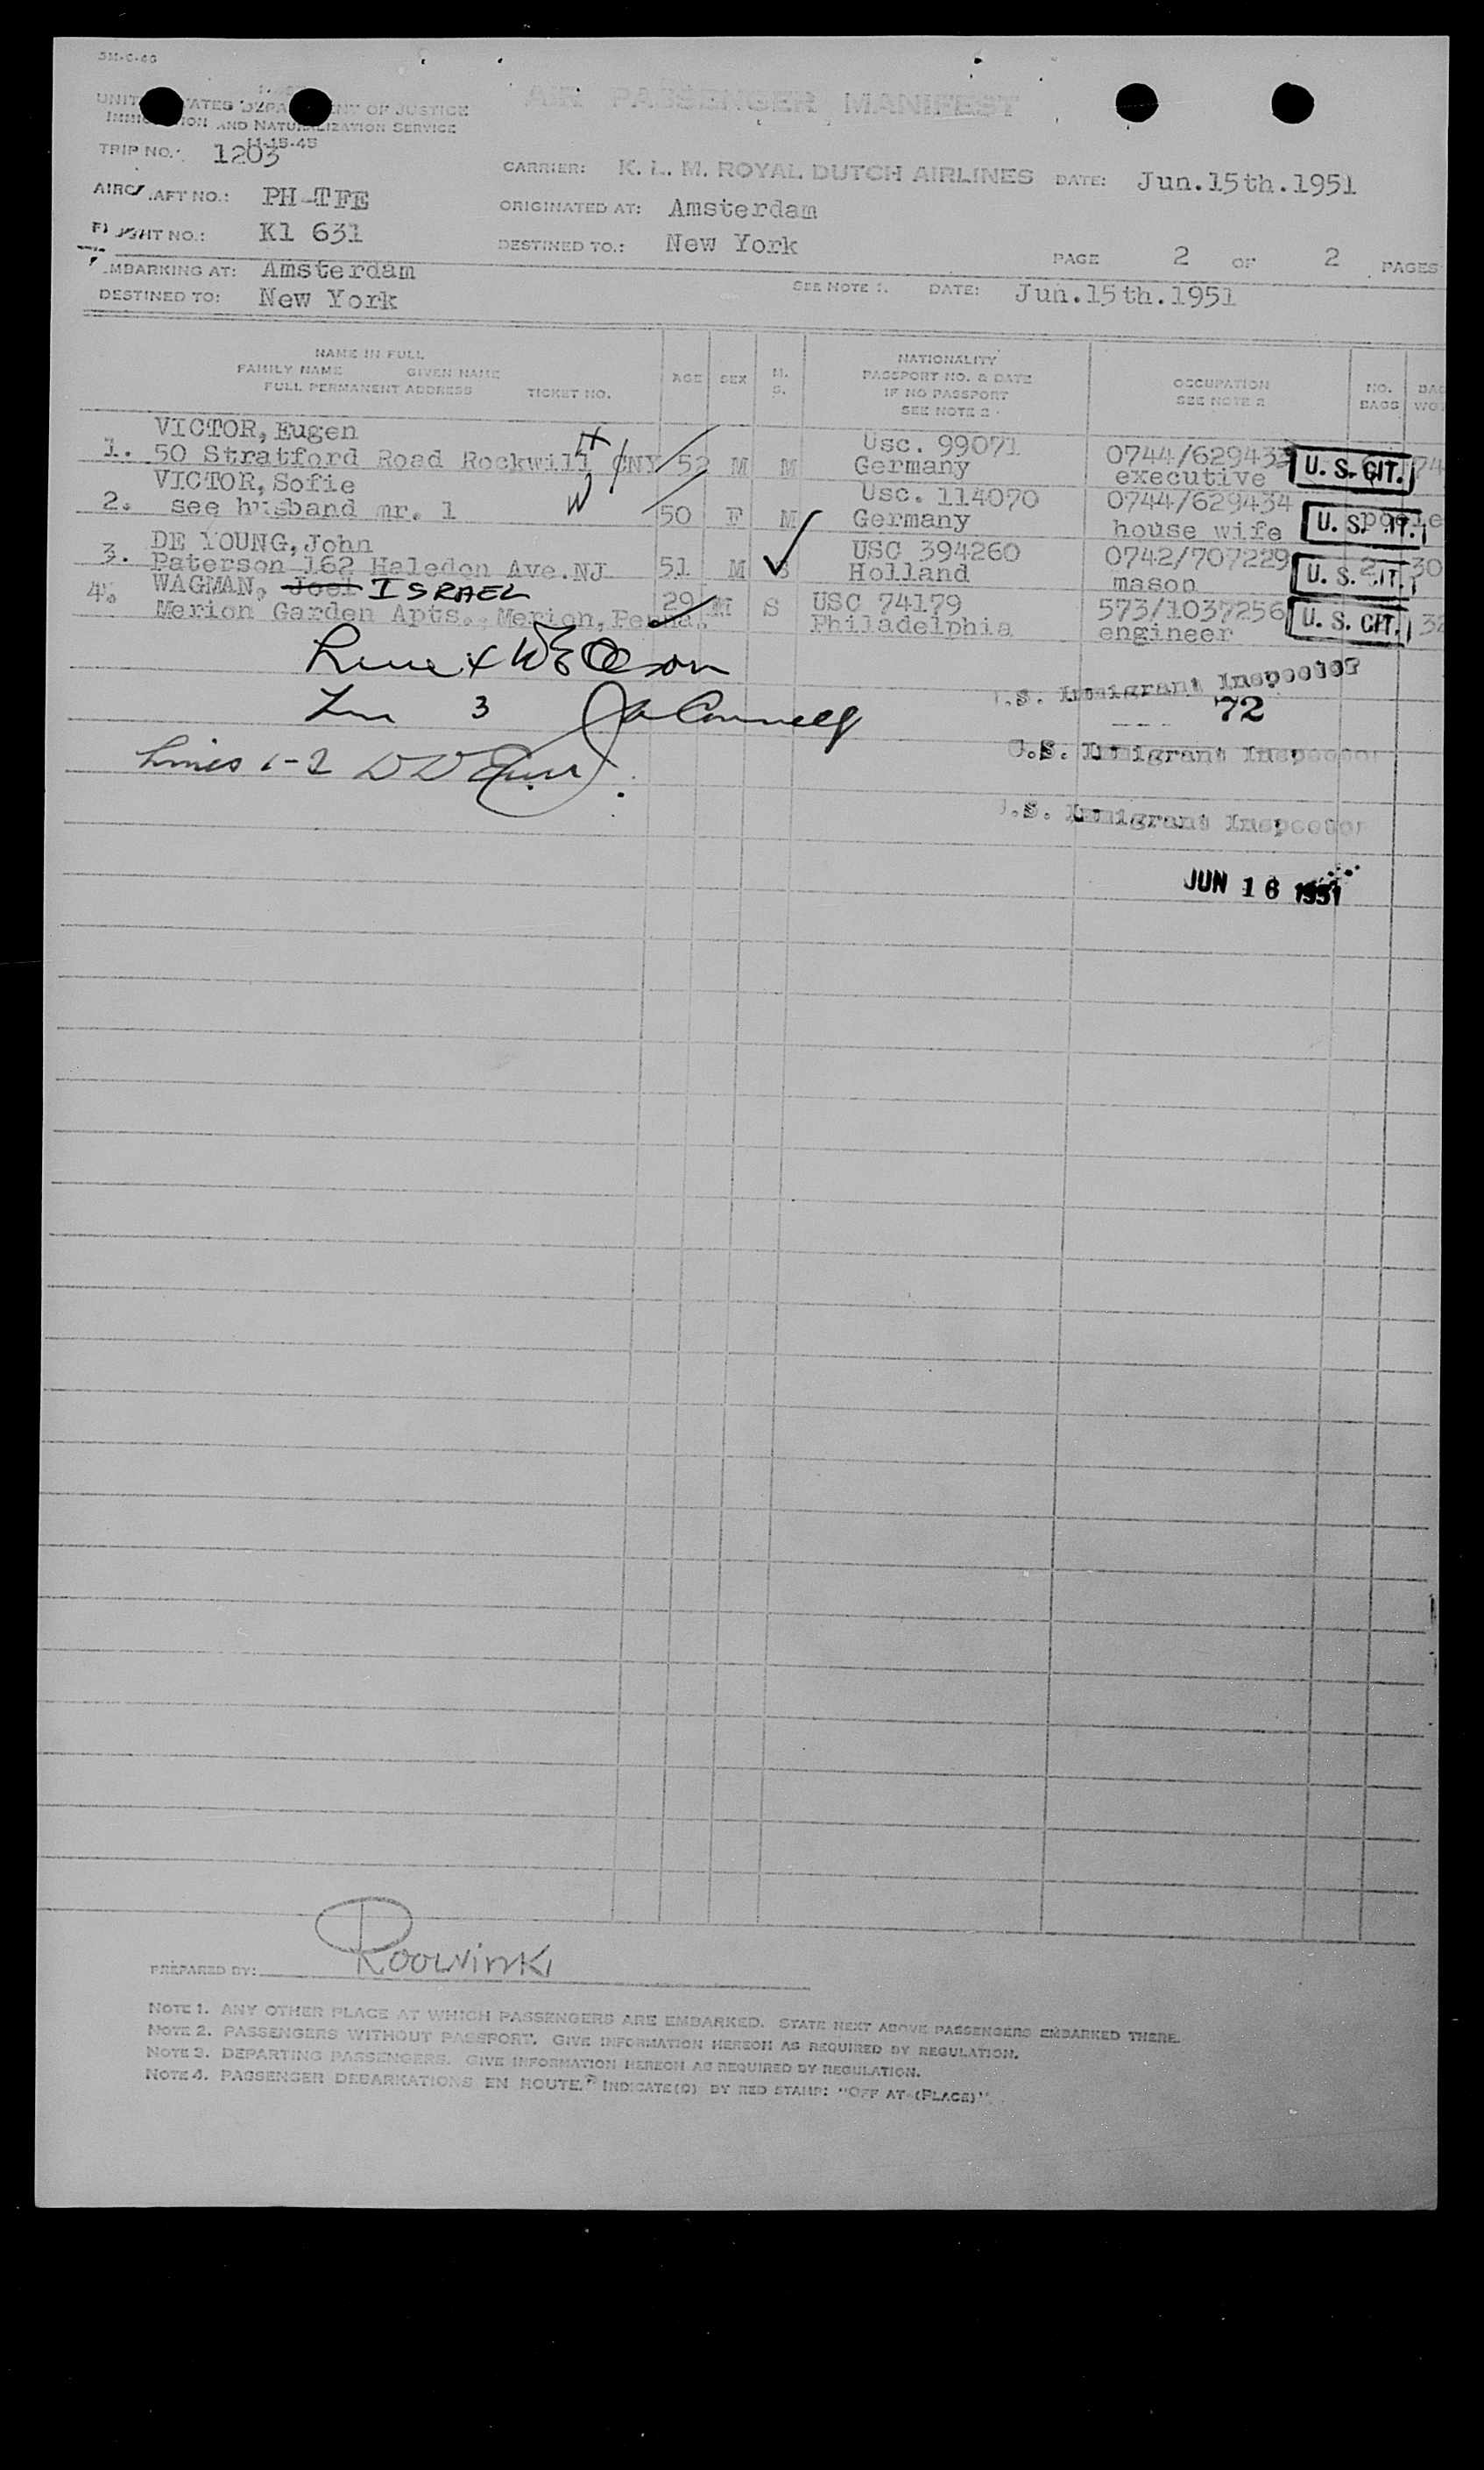 AIR PASSENGER MANIFEST
IMMIGRATION AND NATURALIZATION SERVICE
11-15-45
TRIP NO.: 1203
CARRIER: K. L. M. ROYAL DUTCH AIRLINES DATE: Jun.15th.1951
AIRCRAFT NO.: PH-TFE
ORIGINATED AT: Amsterdam
FLIGHT NO.: Kl 631
DESTINED TO.: New York
PAGE 2 OF 2 PAGES
EMBARKING AT: Amsterdam
SEE NOTE 1. DATE: Jun.15th.1951
DESTINED TO: New York
NAME IN FULL
FAMILY NAME GIVEN NAME
FULL PERMANENT ADDRESS TICKET NO.
AGE SEX M. S.
NATIONALITY
PASSPORT NO. & DATE
IF NO PASSPORT
SEE NOTE 2
OCCUPATION
SEE NOTE 2
NO. BAGS
VICTOR, Eugen Usc. 99071 0744/629433
1. 50 Stratford Road Rockwill CNY 52 M M Germany executive U. S. CIT. 74
VICTOR, Sofie Usc. 114070 0744/629434
2. see husband nr. 1 50 F M Germany house wife U. S. CIT.
DE YOUNG, John USC 394260 0742/707229
3. Paterson 162 Haledon Ave.NJ 51 M S Holland mason U. S. CIT. 30
4. WAGMAN, Joel ISRAEL 29 M S USC 74179 573/1037256
Merion Garden Apts., Merion, Penna. Philadelphia engineer U. S. CIT.
Line 4 W E Olson
U.S. Immigrant Inspector
72
Line 3 J A Connelly
U.S. Immigrant Inspector
Lines 1-2 D D
U.S. Immigrant Inspector
JUN 16 1951
PREPARED BY: Roolvink
NOTE 1. ANY OTHER PLACE AT WHICH PASSENGERS ARE EMBARKED. STATE NEXT ABOVE PASSENGERS EMBARKED THERE.
NOTE 2. PASSENGERS WITHOUT PASSPORT. GIVE INFORMATION HEREON AS REQUIRED BY REGULATION.
NOTE 3. DEPARTING PASSENGERS. GIVE INFORMATION HEREON AS REQUIRED BY REGULATION.
NOTE 4. PASSENGER DEBARKATIONS EN ROUTE. INDICATE(D) BY RED STAMP: "OFF AT (PLACE)".